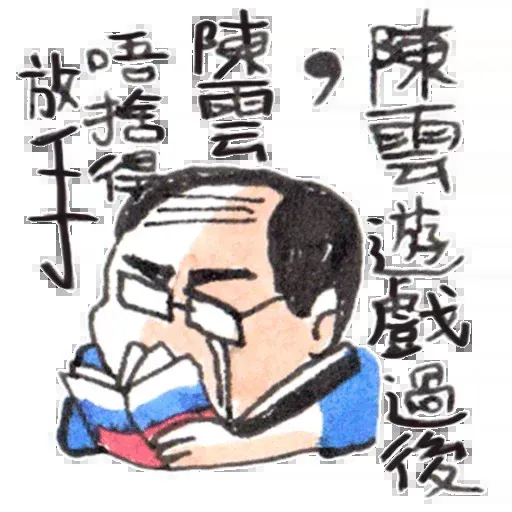 陳雲遊戲過後
，陳雲
唔捨得
放手